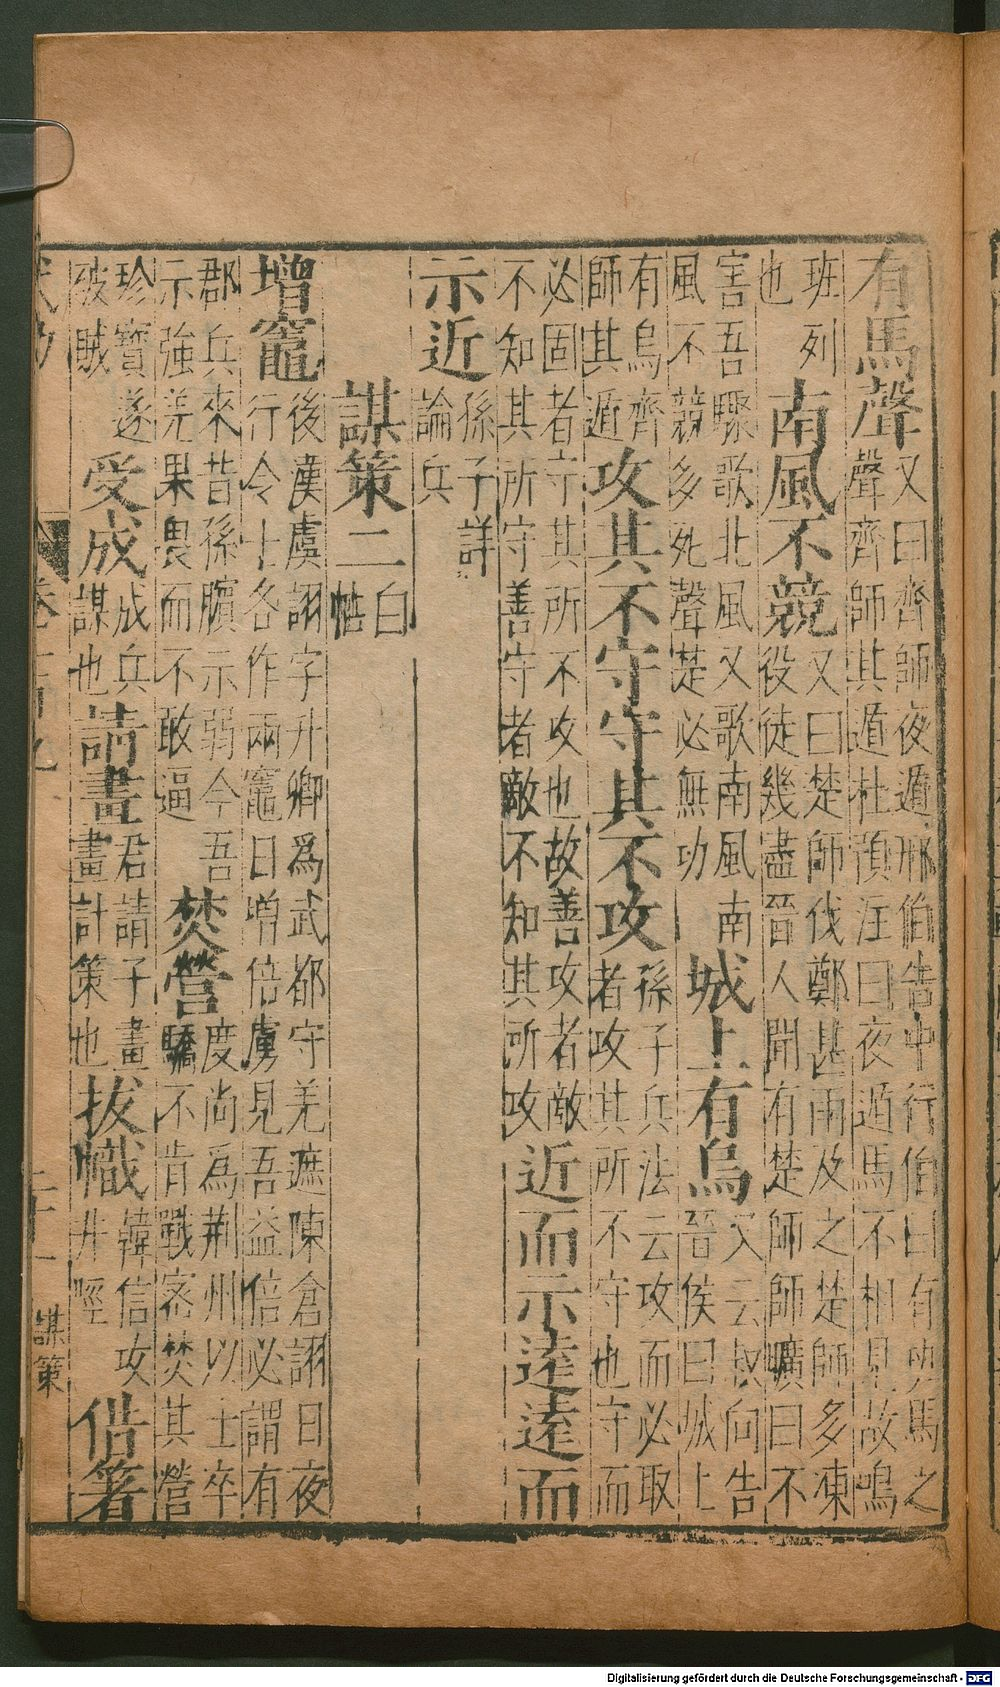 有馬聲又曰齊師夜遁邢伯告中行伯曰有班馬之聲齊師其遁杜預注曰夜遁馬不相見故鳴
班列也南風不競又曰楚師伐鄭甚雨及之楚師多凍役徒幾盡晉人聞有楚師師曠曰不
害吾驟歌北風又歌南風南風不競多死聲楚必無功城上有烏又云叔向告晉侯曰城上
有烏齊師其遁攻其不守守其不攻孫子兵法云攻而必取者攻其所不守也守而
必固者守其所不攻也故善攻者敵不知其所守善守者敵不知其所攻近而示遠遠而
示近孫子詳論兵
謀策二白帖
增竈後漢虞詡字升卿爲武都守羌遮陳倉詡日夜行令士各作兩竈日增倍虜見吾益倍必謂有
郡兵來昔孫臏示弱今吾示強羌果畏而不敢逼焚營度尚爲荆州以士卒驕不肯戰密焚其營
珍寶遂破賊受成成兵謀也請畫君請子畫畫計策也拔幟韓信攻井陘借箸
謀策
Digitalisierung gefördert durch die Deutsche Forschungsgemeinschaft - DFG